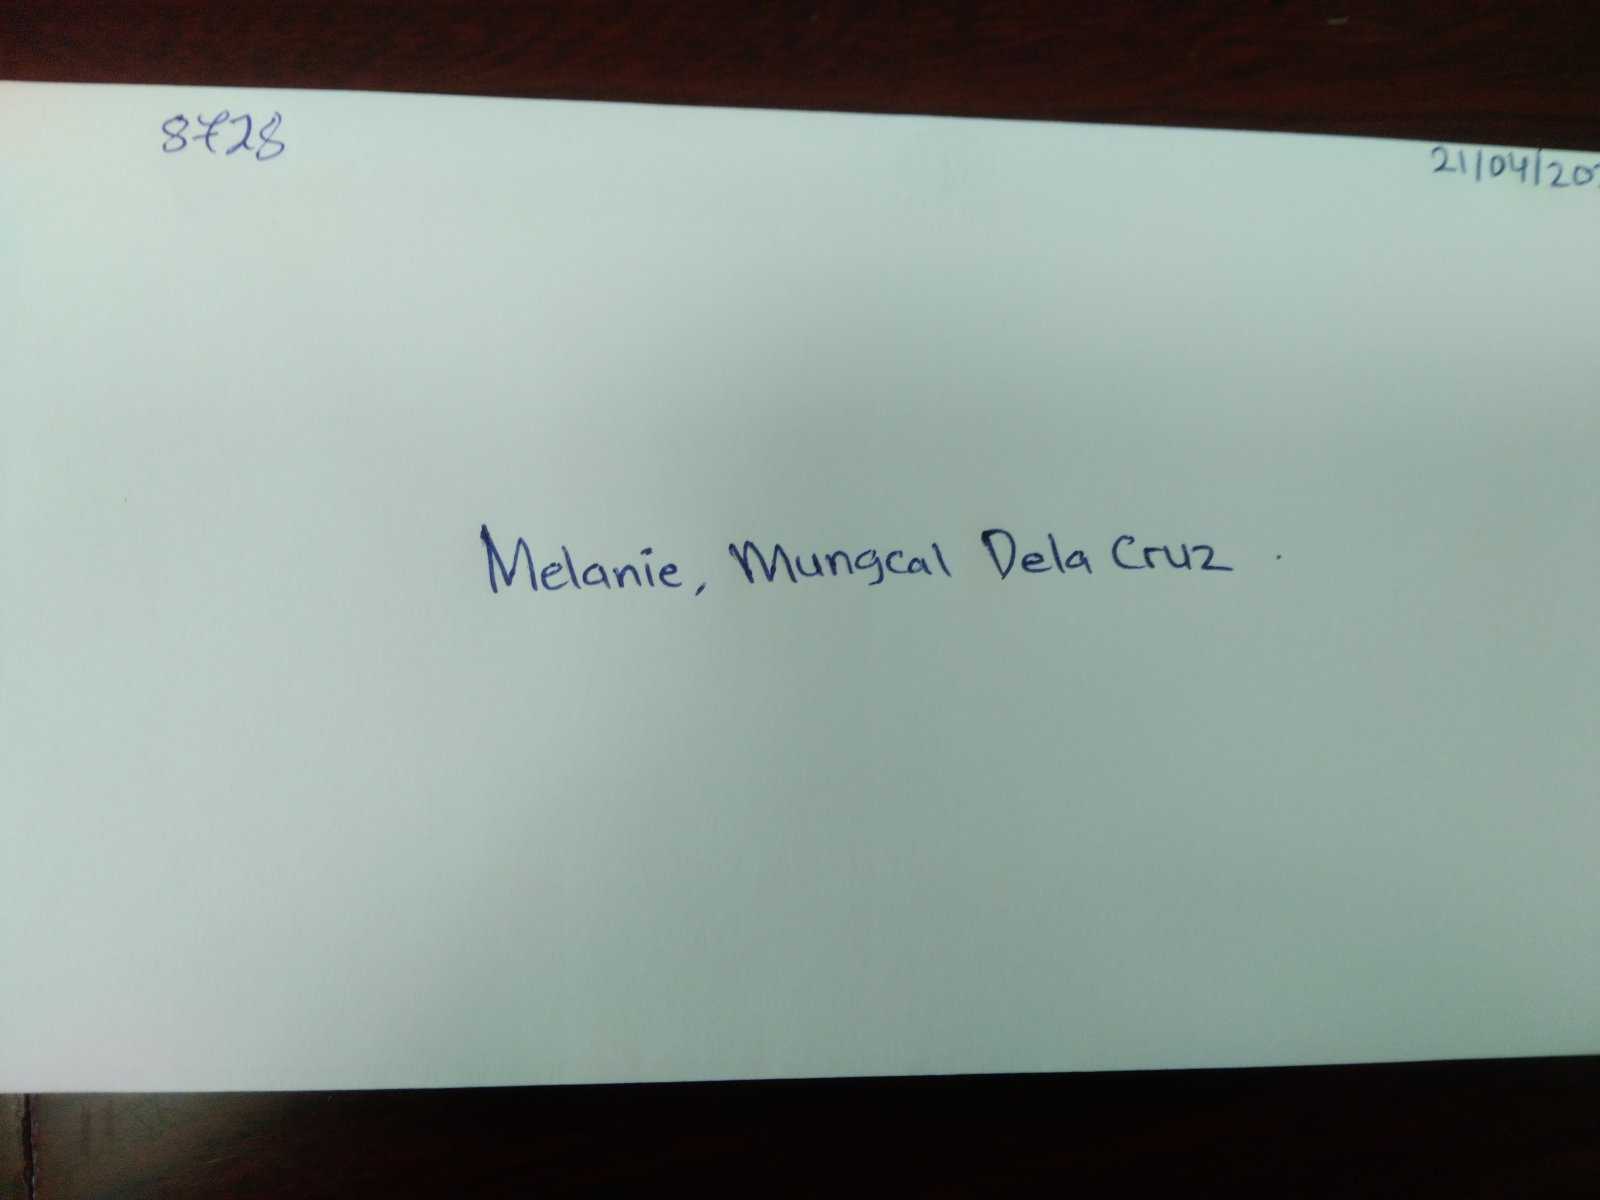 8728
21/04/202
Melanie, Mungcal Dela Cruz .